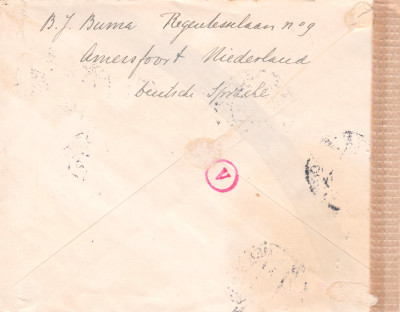 B. J. Buma Regentesselaan no 9
Amersfoort Niederland
Deutsche Sprache
V